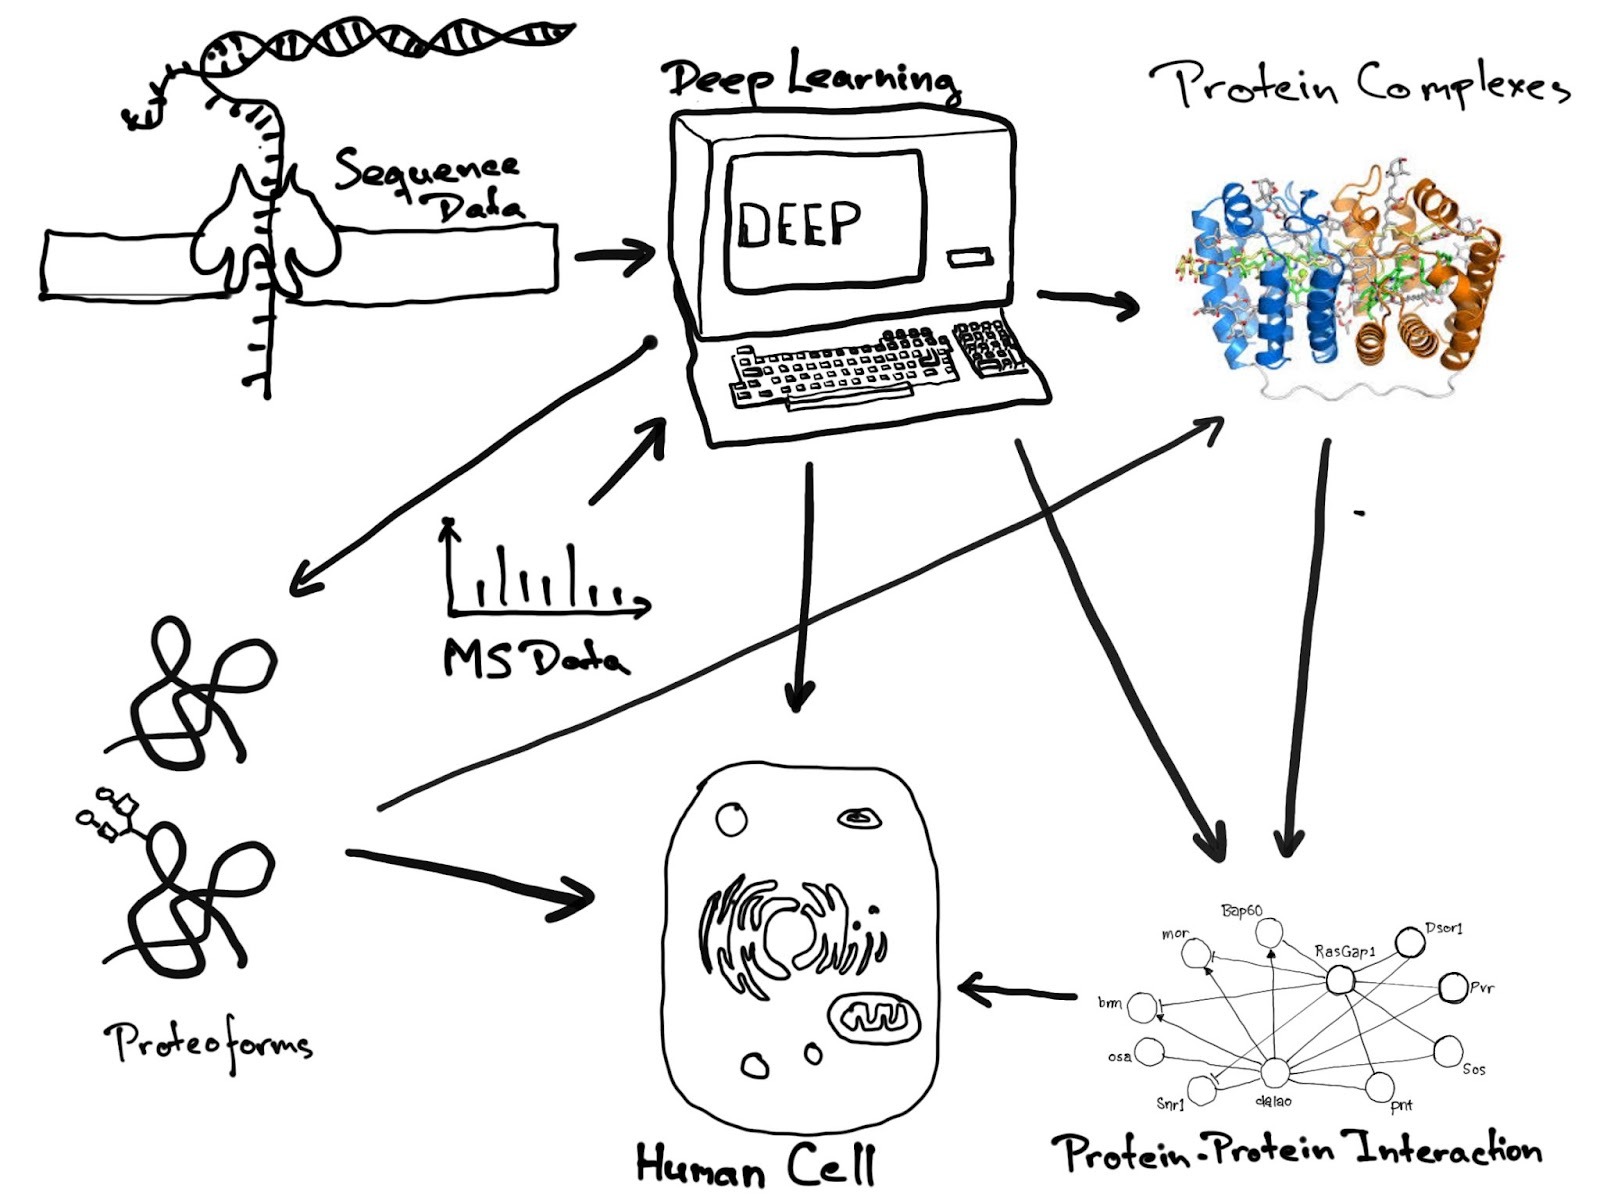 Deep Learning
Protein Complexes
Sequence
Data
DEEP
MS Data
Proteoforms
Human Cell
Bap60
mor
RasGap1
Dsor1
brm
Pvr
osa
Sos
Snr1
dalao
pnt
Protein-Protein Interaction